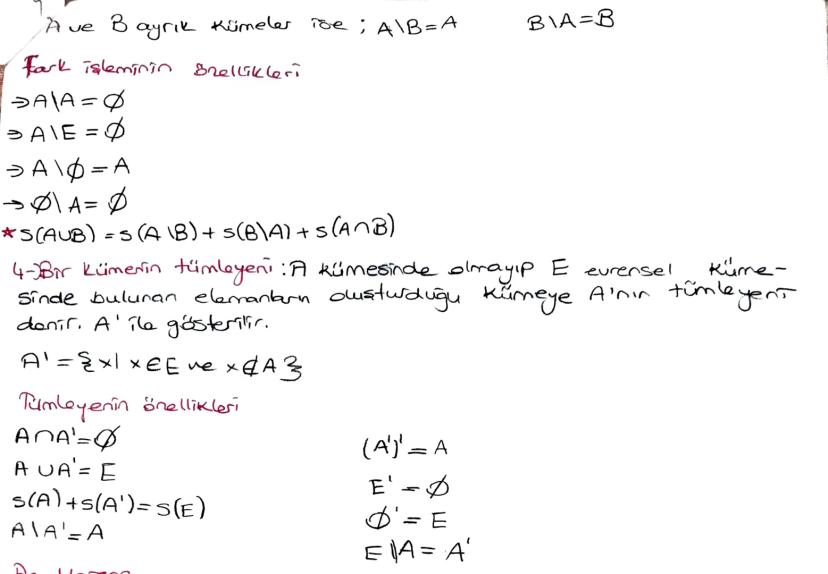 A ve B ayrık kümeler ise ; A\B=A B\A=B
Fark işleminin özellikleri
⇒A\A=∅
⇒A\E=∅
⇒A\∅=A
→∅\A=∅
*s(A∪B)=s(A\B)+s(B\A)+s(A∩B)
4-)Bir kümenin tümleyeni : A kümesinde olmayıp E evrensel küme-
sinde bulunan elemanların oluşturduğu kümeye A'nın tümleyeni
denir. A' ile gösterilir.
A'={x| x∈E ve x∉A}
Tümleyenin özellikleri
A∩A'=∅
A∪A'=E
s(A)+s(A')=s(E)
A\A'=A
(A')'=A
E'=∅
∅'=E
E\A=A'